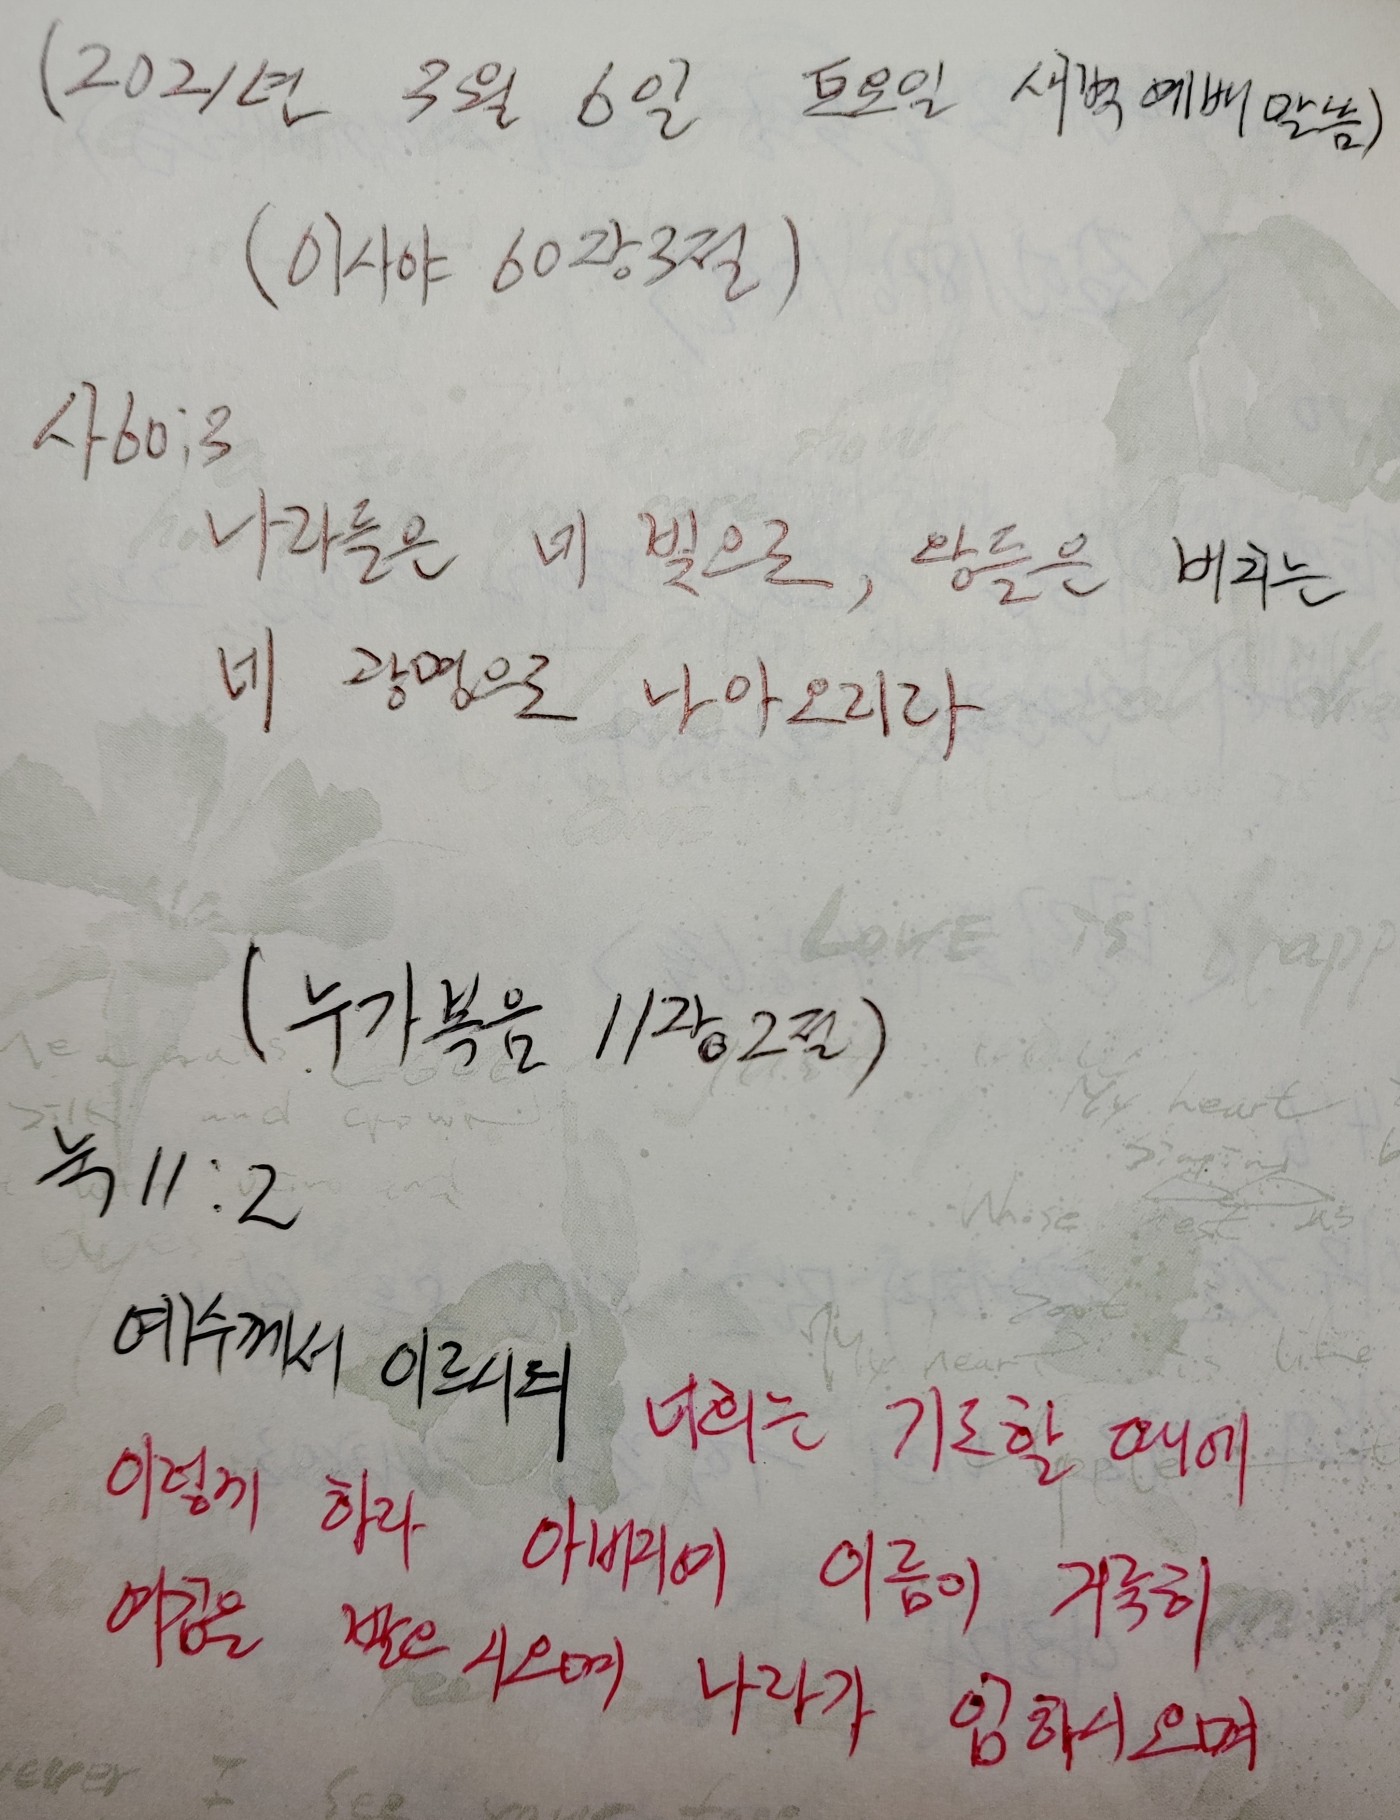 (2021년 3월 6일 토요일 새벽예배말씀)
(이사야 60장3절)
사60:3
나라들은 네 빛으로, 왕들은 비취는
네 광명으로 나아오리라
LOVE is
(누가복음 11장2절)
and crown
My heart
눅11:2
Whose nest is
예수께서 이르시되 너희는 기도할 때에
My heart is like
이렇게 하라 아버지여 이름이 거룩히
여김을 받으시오며 나라가 임하시오며
I See your face